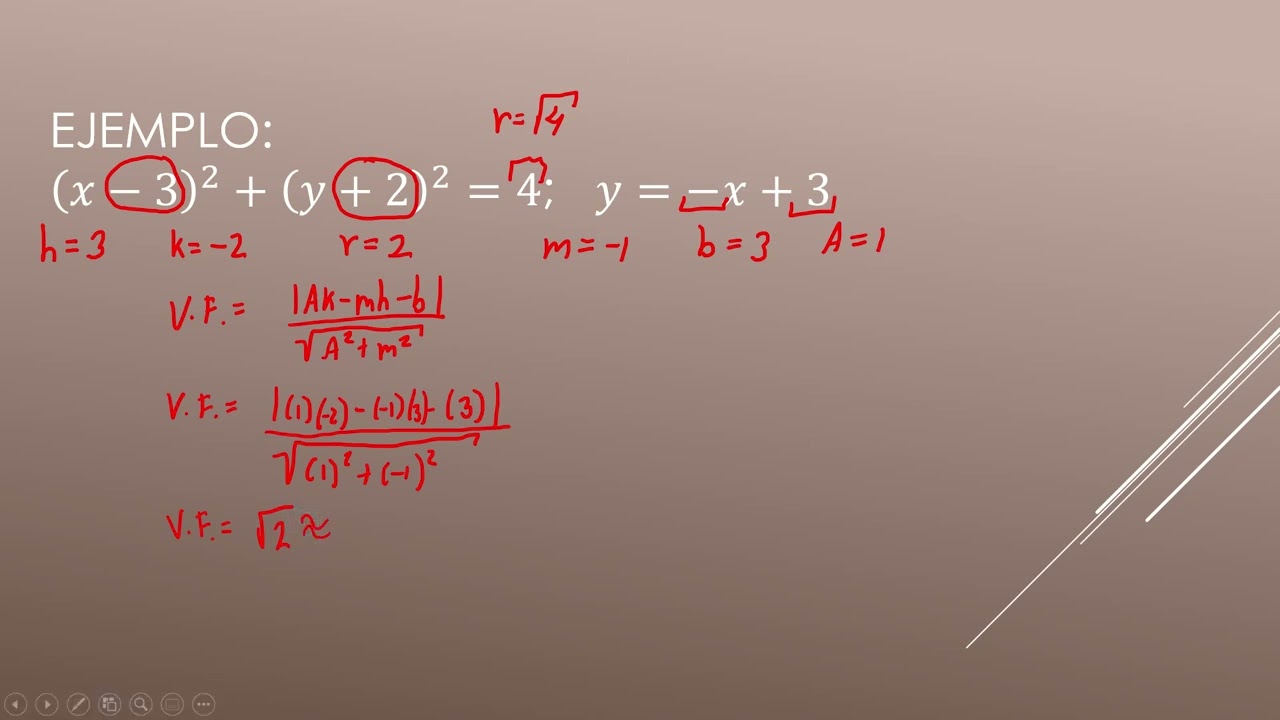 EJEMPLO:
r=√4
(x − 3)² + (y + 2)² = 4;   y = −x + 3
h=3   k=-2   r=2   m=-1   b=3   A=1
V.F.= |Ak-mh-b| / √(A²+m²)
V.F.= |(1)(-2)-(-1)(3)-(3)| / √((1)²+(-1)²)
V.F.= √2 ≈